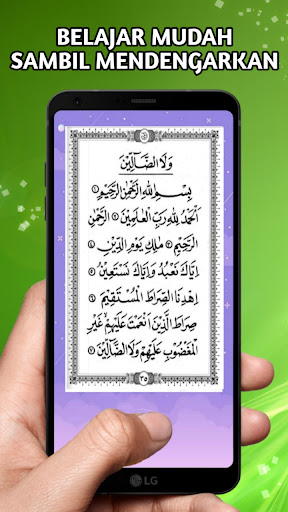 BELAJAR MUDAH
SAMBIL MENDENGARKAN
وَلَا الضَّآلِّيْنَ
بِسْمِ اللهِ الرَّحْمٰنِ الرَّحِيْمِ ۝١
اَلْحَمْدُ لِلّٰهِ رَبِّ الْعٰلَمِيْنَ ۝٢ الرَّحْمٰنِ
الرَّحِيْمِ ۝٣ مٰلِكِ يَوْمِ الدِّيْنِ ۝٤
اِيَّاكَ نَعْبُدُ وَاِيَّاكَ نَسْتَعِيْنُ ۝٥
اِهْدِنَا الصِّرَاطَ الْمُسْتَقِيْمَ ۝٦
صِرَاطَ الَّذِيْنَ اَنْعَمْتَ عَلَيْهِمْ غَيْرِ
الْمَغْضُوْبِ عَلَيْهِمْ وَلَا الضَّآلِّيْنَ ۝٧
٣٥
LG